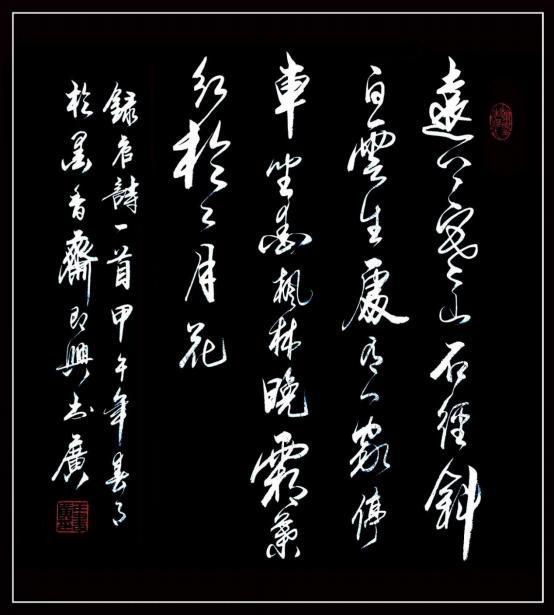 遠上寒山石徑斜
白雲生處有人家停
車坐愛楓林晚霜葉
紅於二月花
錄唐詩一首甲午年春月
於墨香齋即興书廣